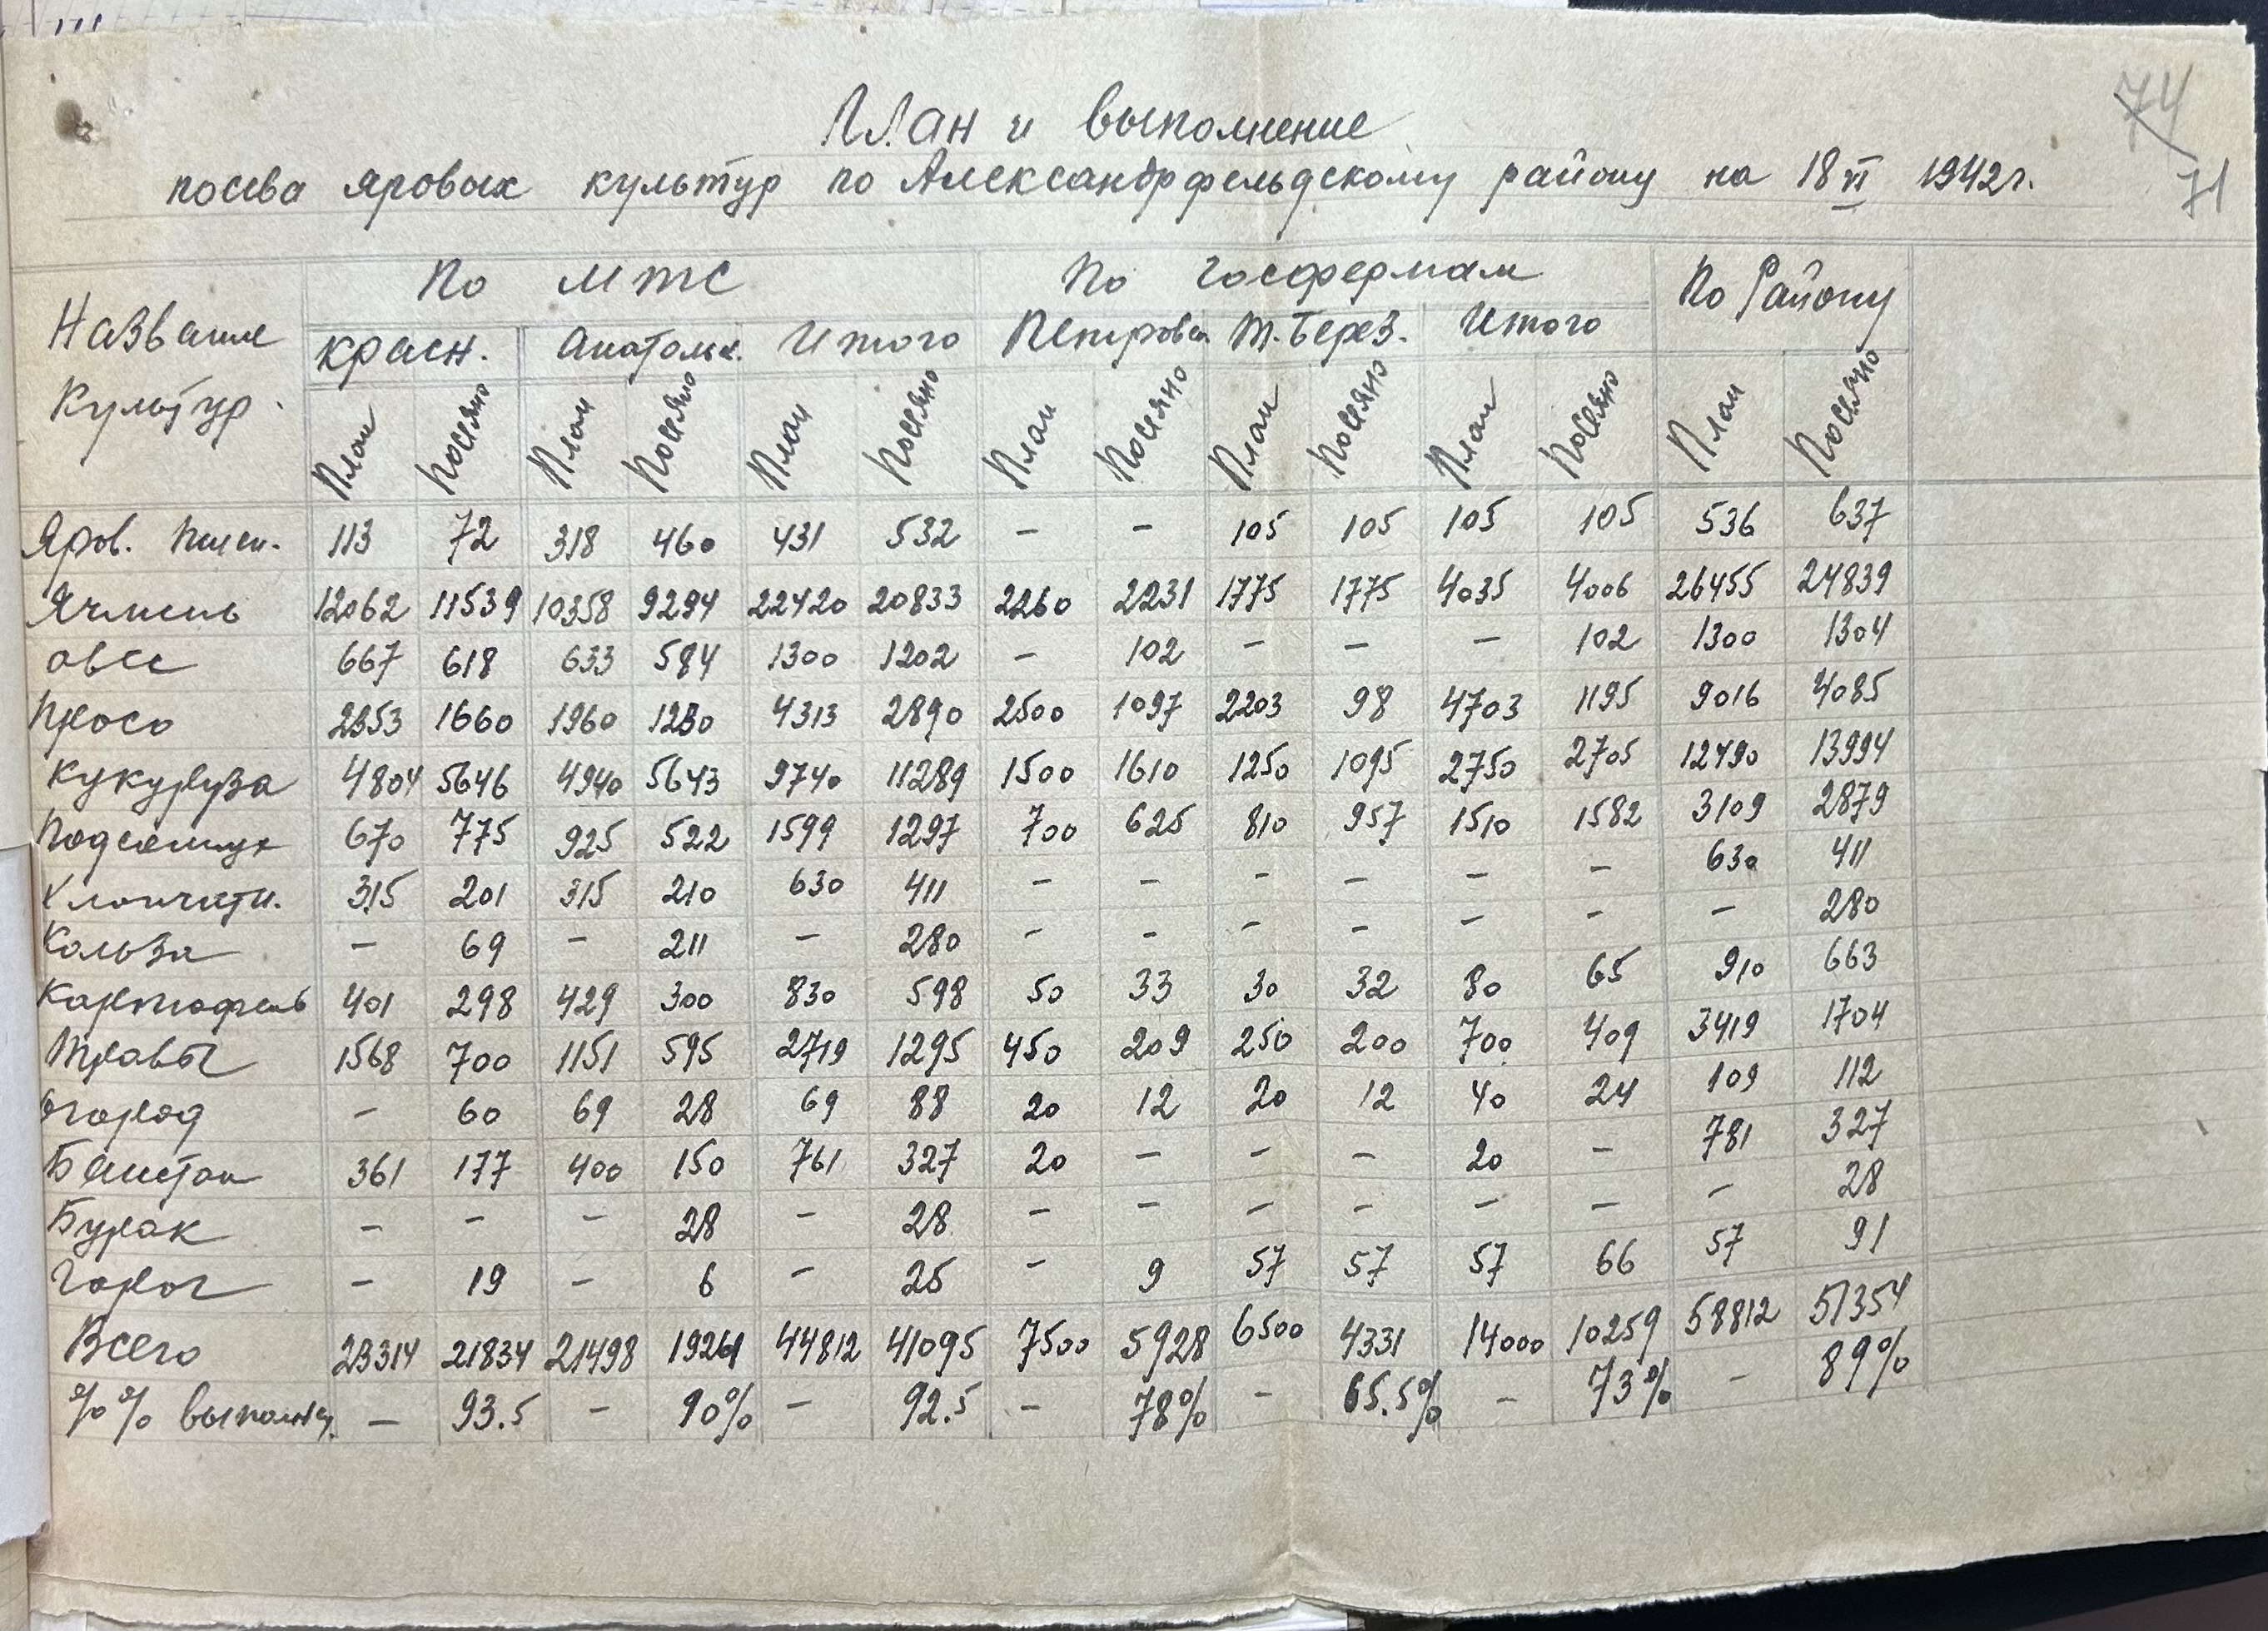 74
71
План и выполнение
посева яровых культур по Александрфельдскому району на 18 VI 1942 г.
Название культур | По МТС | По Госфермам | По Району
красн. | Анатольев. | Итого | Петровск | Т. Берез. | Итого
План | Посеяно | План | Посеяно | План | Посеяно | План | Посеяно | План | Посеяно | План | Посеяно | План | Посеяно
Яров. пшен. | 113 | 72 | 318 | 460 | 431 | 532 | – | – | 105 | 105 | 105 | 105 | 536 | 637
Ячмень | 12062 | 11539 | 10358 | 9294 | 22420 | 20833 | 2260 | 2231 | 1775 | 1775 | 4035 | 4006 | 26455 | 24839
Овес | 667 | 618 | 633 | 584 | 1300 | 1202 | – | 102 | – | – | – | 102 | 1300 | 1304
Просо | 2353 | 1660 | 1960 | 1230 | 4313 | 2890 | 2500 | 1097 | 2203 | 98 | 4703 | 1195 | 9016 | 4085
Кукуруза | 4804 | 5646 | 4940 | 5643 | 9740 | 11289 | 1500 | 1610 | 1250 | 1095 | 2750 | 2705 | 12490 | 13994
Подсолнух | 670 | 775 | 925 | 522 | 1599 | 1297 | 700 | 625 | 810 | 957 | 1510 | 1582 | 3109 | 2879
Хлопчатн. | 315 | 201 | 315 | 210 | 630 | 411 | – | – | – | – | – | – | 630 | 411
Кольза | – | 69 | – | 211 | – | 280 | – | – | – | – | – | – | – | 280
Картофель | 401 | 298 | 429 | 300 | 830 | 598 | 50 | 33 | 30 | 32 | 80 | 65 | 910 | 663
Травы | 1568 | 700 | 1151 | 595 | 2719 | 1295 | 450 | 209 | 250 | 200 | 700 | 409 | 3419 | 1704
Огород | – | 60 | 69 | 28 | 69 | 88 | 20 | 12 | 20 | 12 | 40 | 24 | 109 | 112
Баштан | 361 | 177 | 400 | 150 | 761 | 327 | 20 | – | – | – | 20 | – | 781 | 327
Бурак | – | – | – | 28 | – | 28 | – | – | – | – | – | – | – | 28
Горох | – | 19 | – | 6 | – | 25 | – | 9 | 57 | 57 | 57 | 66 | 57 | 91
Всего | 23314 | 21834 | 21498 | 19261 | 44812 | 41095 | 7500 | 5928 | 6500 | 4331 | 14000 | 10259 | 58812 | 51354
%% выполнен. | – | 93.5 | – | 90% | – | 92.5 | – | 78% | – | 65.5% | – | 73% | – | 89%